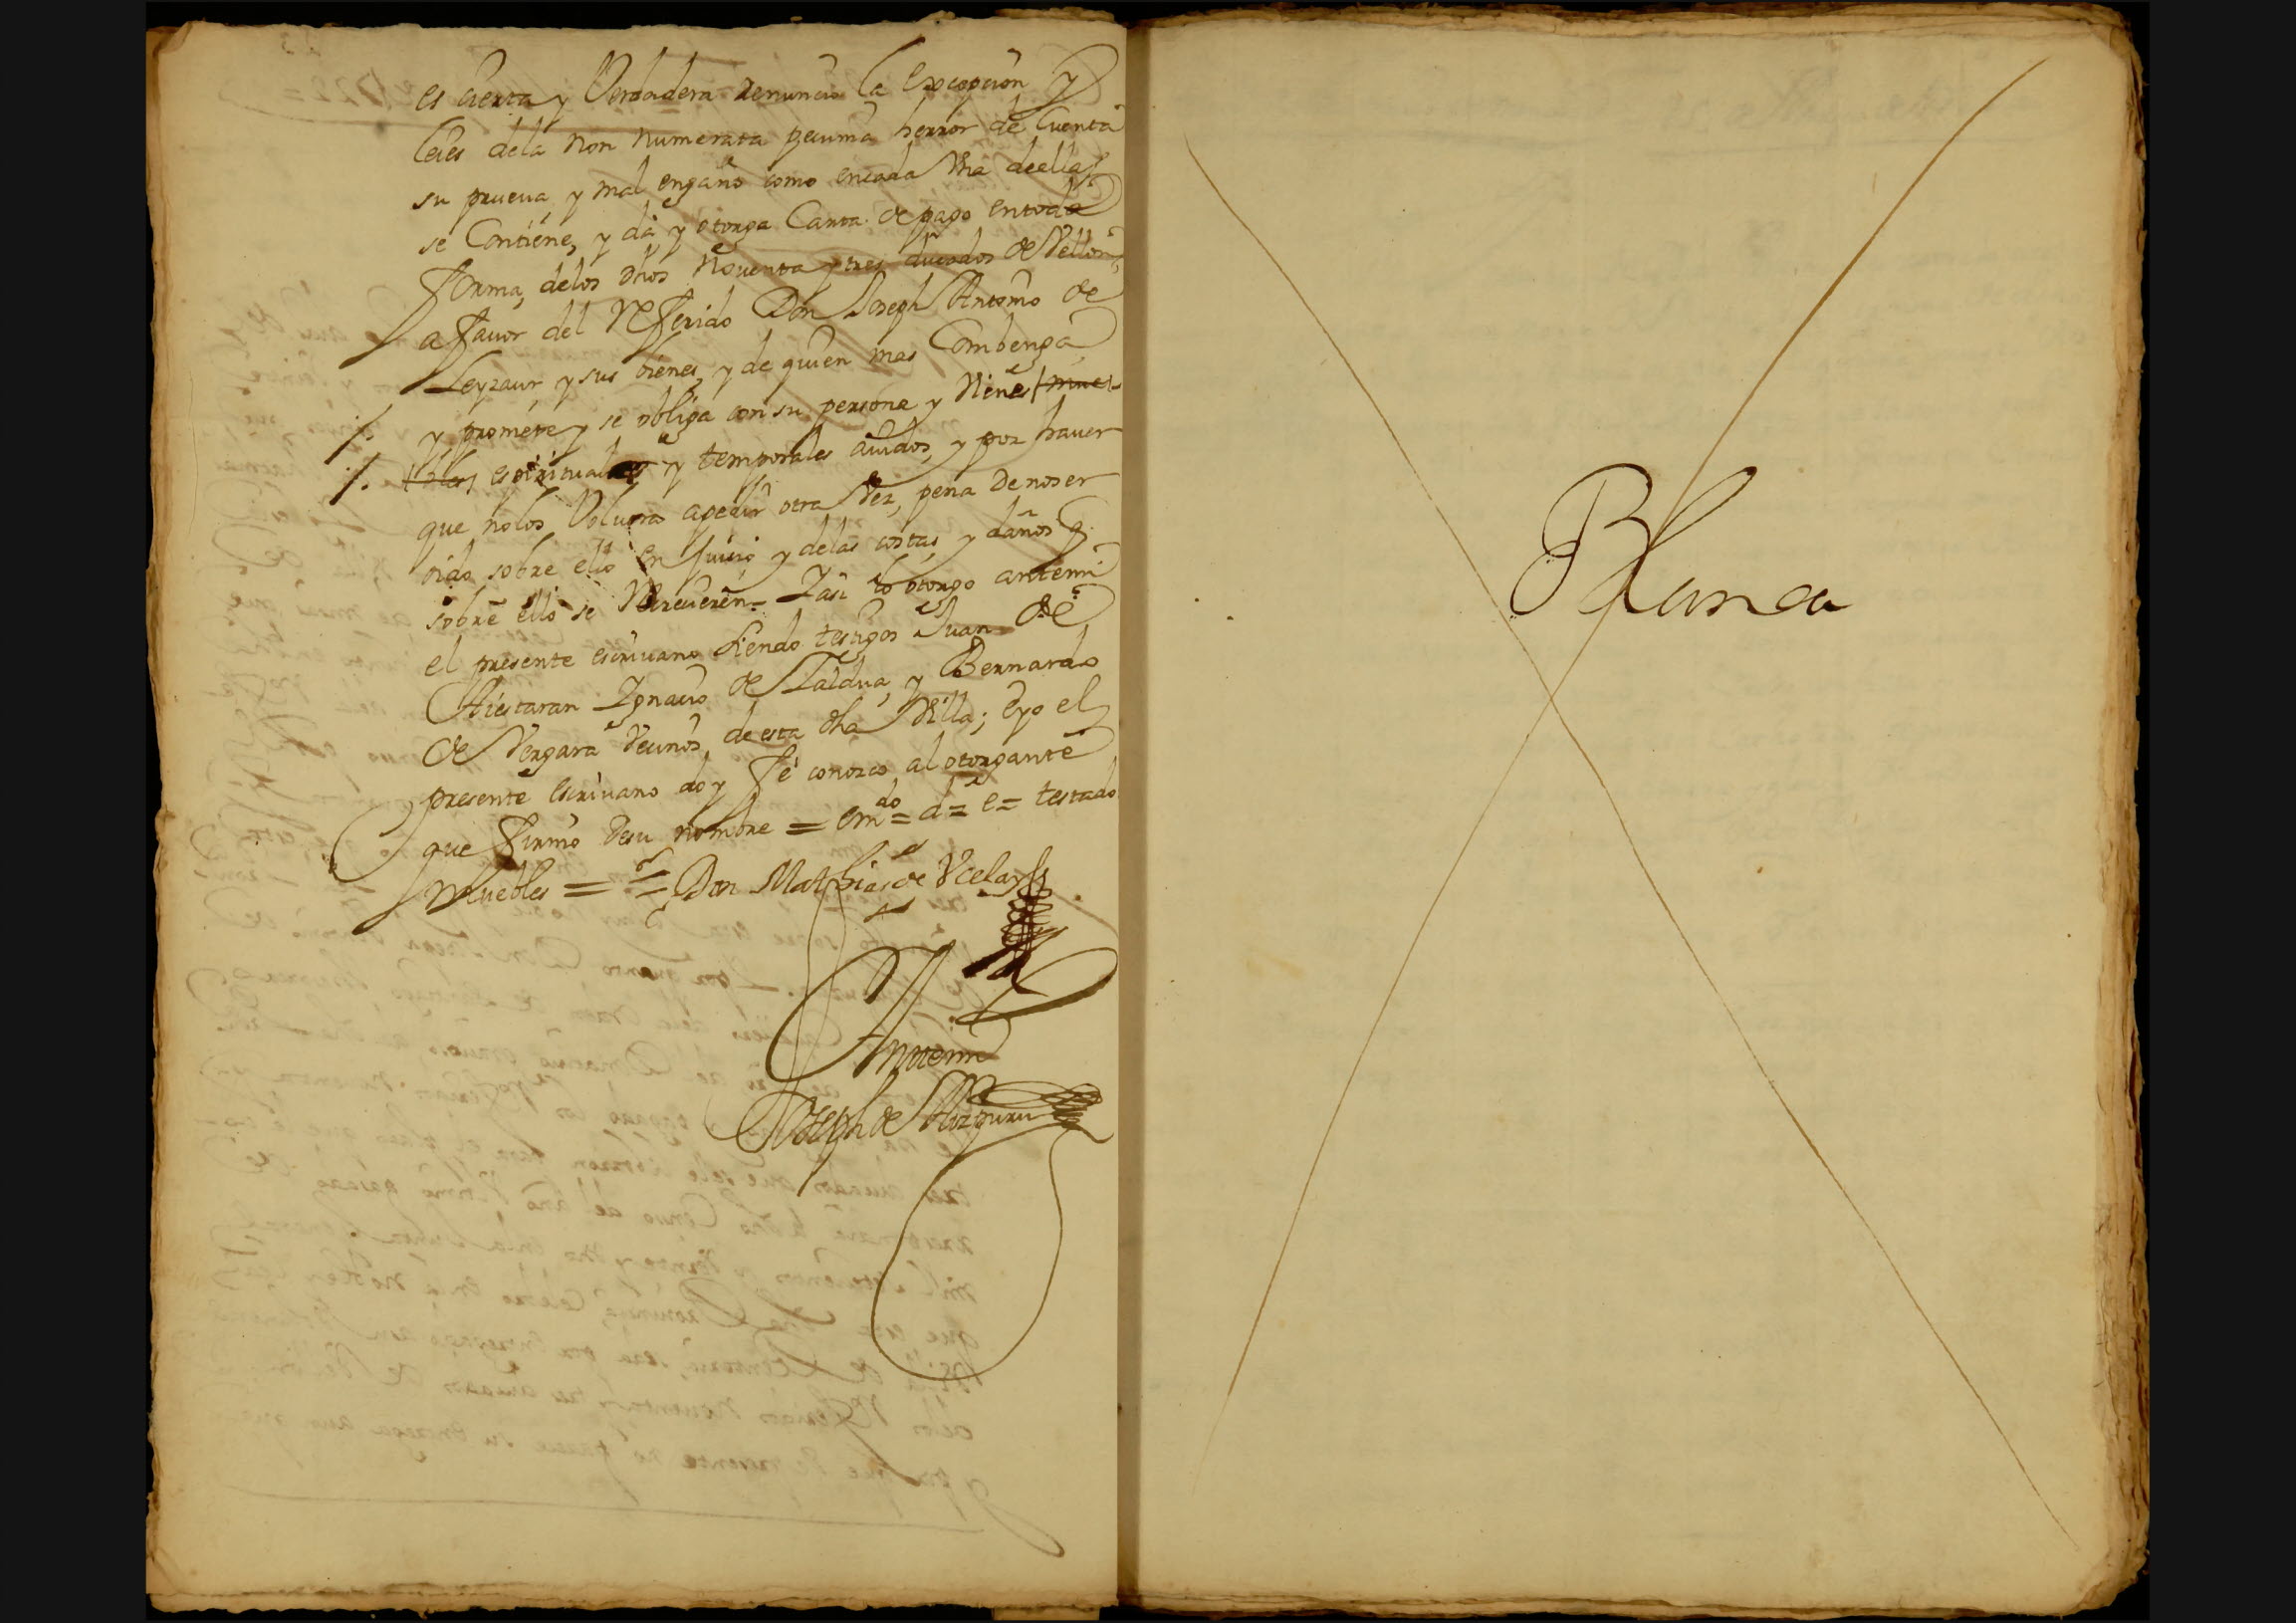 es cierta y Verdadera renuncio la excepcion y
leies dela non numerata pecunia herror de Cuenta
su prueva y mal engaño como encada Vna deellas
se Contiene, y da y otorga Carta de pago entoda
forma, delos dhos noventa y tres ducados de Vellon,
afavor del Referido Don Joseph Antonio de
Leyzaur, y sus bienes, y de quien mas Combenga
y promete y se obliga con su persona y Vienes mue-
bles espirituales y temporales avidos, y por haver
que nolos Volvera apedir otra Vez, pena denoser
oido sobre ello en Juicio y delas costas, y daños q.
sobre ello se Recrecieren = Iasi lo otorgo antemi
el presente escrivano siendo testigos Juan de
Aiestaran Ignacio de Zaldua, y Bernardo
de Vergara Vecinos, de esta dha Villa; Eyo el
presente escrivano doy fe conozco al otorgante
que firmo desu nombre = em.do = a = e = testado
muebles =
Don Mathias de Vcelay
Antemi
Joseph de Aizpuru
Blanca